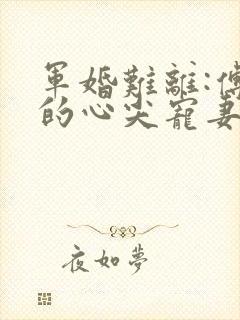 軍婚難離:傅
的心尖寵妻
夜如夢